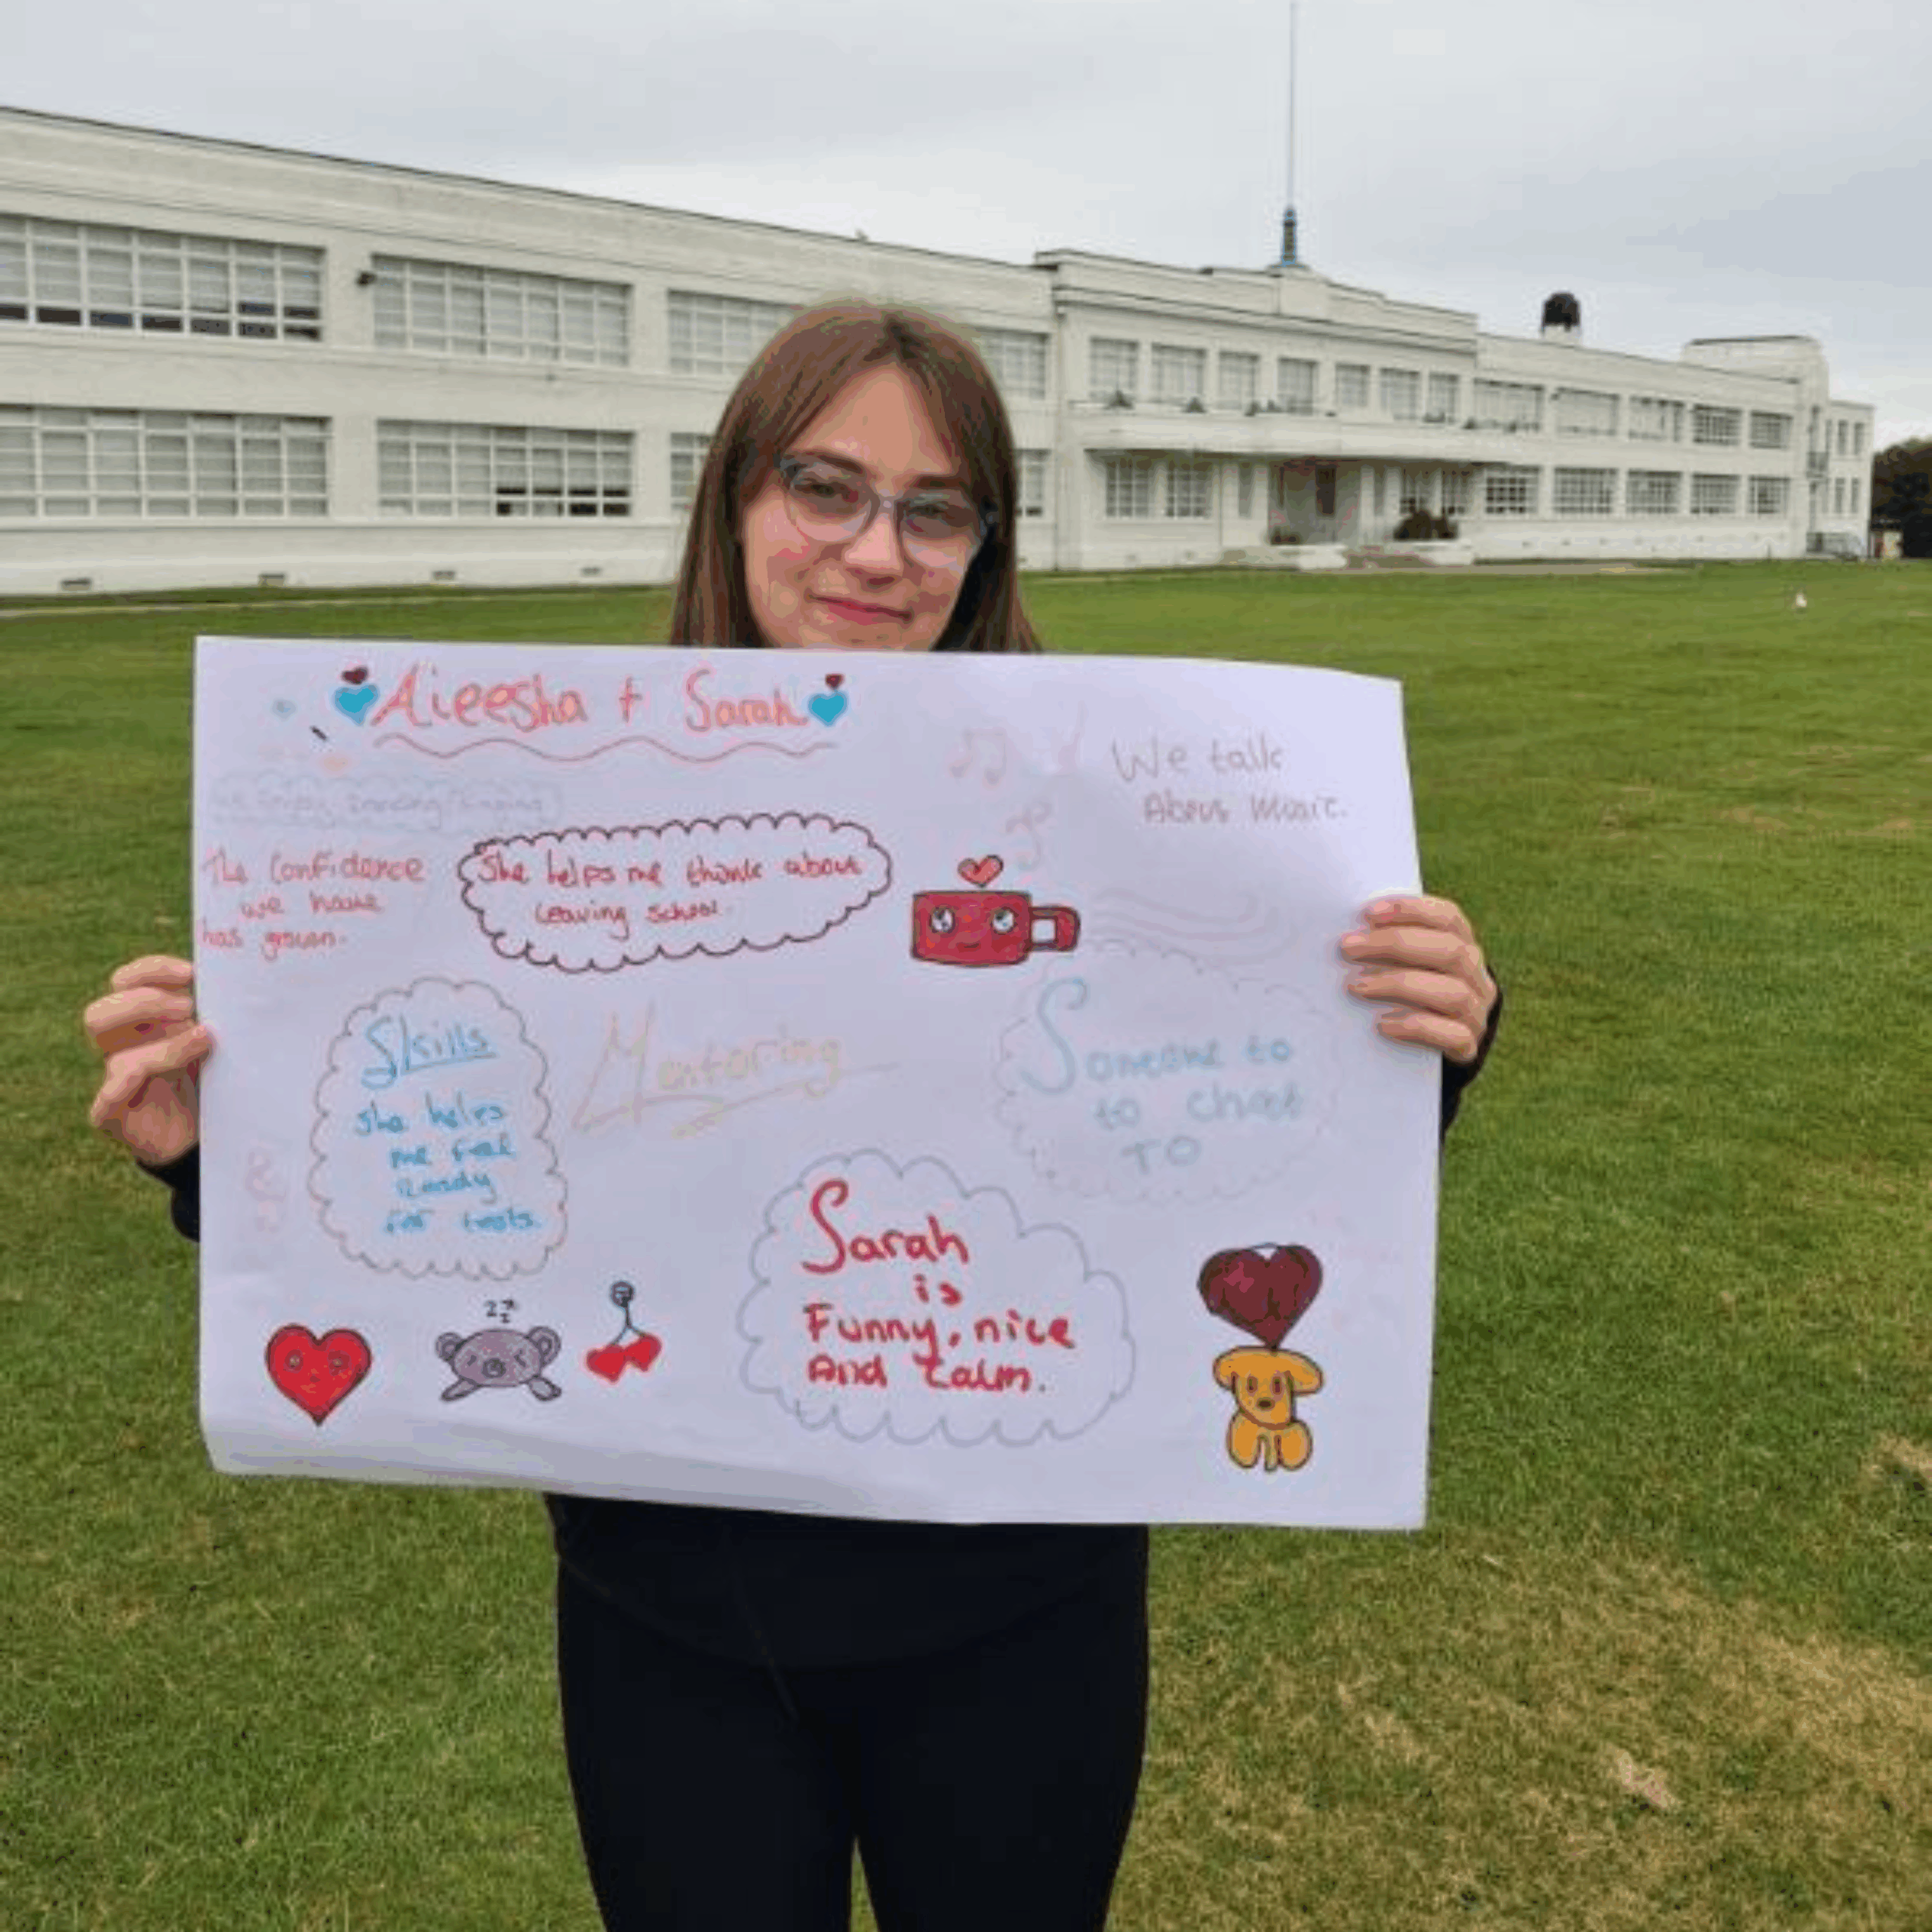 Aieesha + Sarah
We talk
About Music.
we enjoy Dancing/Singing
The Confidence
we have
has grown.
She helps me think about
leaving school.
Skills
She helps
me feel
Ready
for tests.
Mentoring
Someone to
to chat
TO
zzz
Sarah
is
Funny, nice
And Calm.